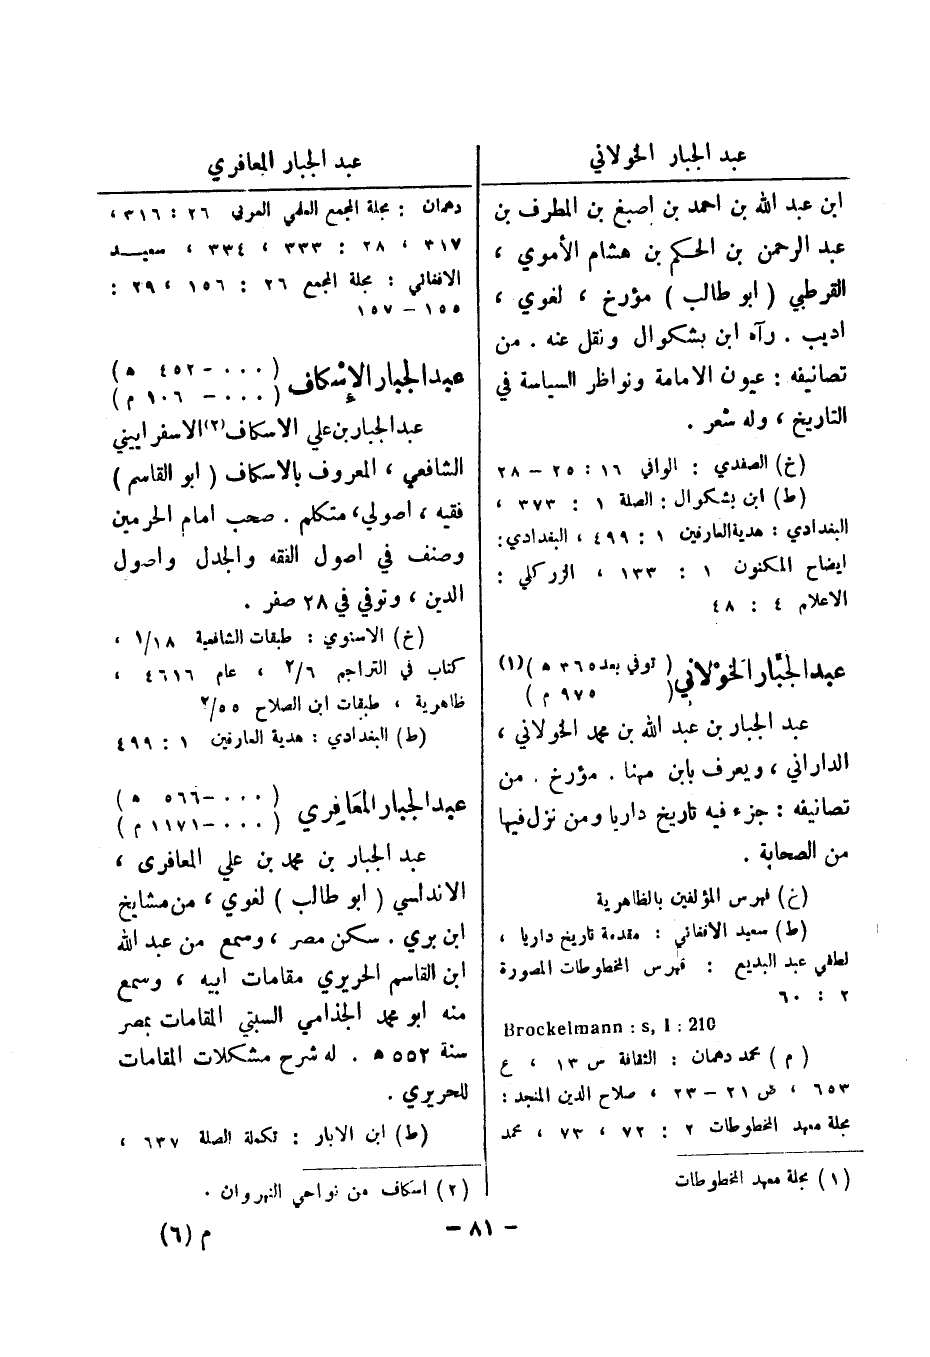 عبد الجبار الخولاني
ابن عبد الله بن احمد بن اصبغ بن المطرف بن
عبد الرحمن بن الحكم بن هشام الأموي ،
القرطبي ( ابو طالب ) مؤرخ ، لغوي ،
اديب . رآه ابن بشكوال ونقل عنه . من
تصانيفه : عيون الامامة ونواظر السياسة في
التاريخ ، وله شعر .
(خ) الصفدي : الوافي ١٦ : ٢٥ – ٢٨
(ط) ابن بشكوال : الصلة ١ : ٣٧٣ ،
البغدادي : هدية العارفين ١ : ٤٩٩ ، البغدادي :
ايضاح المكنون ١ : ١٣٣ ، الزركلي :
الاعلام ٤ : ٤٨
عبد الجبّار الخولاني ( توفي بعد ٣٦٥ ه ) (١)
( ٩٧٥ م )
عبد الجبار بن عبد الله بن محمد الخولاني ،
الداراني ، ويعرف بابن مهنا . مؤرخ . من
تصانيفه : جزء فيه تاريخ داريا ومن نزل فيها
من الصحابة .
(خ) فهرس المؤلفين بالظاهرية
(ط) سعيد الافغاني : مقدمة تاريخ داريا ،
لطفي عبد البديع : فهرس المخطوطات المصورة
٢ : ٦٠
Brockelmann : s, I : 210
( م ) محمد دهمان : الثقافة س ١٣ ، ع
٦٥٣ ، ص ٢١ – ٢٣ ، صلاح الدين المنجد :
مجلة معهد المخطوطات ٢ : ٧٢ ، ٧٣ ، محمد
(١) مجلة معهد المخطوطات
عبد الجبار المعافري
دهمان : مجلة المجمع العلمي العربي ٢٦ : ٣١٦ ،
٣١٧ ، ٢٨ : ٣٣٣ ، ٣٣٤ ، سعيد
الافغاني : مجلة المجمع ٢٦ : ١٥٦ ، ٢٩ :
١٥٥ – ١٥٧
عبد الجبار الإسكاف ( ٠٠٠ – ٤٥٢ ه )
( ٠٠٠ – ١٠٦ م )
عبد الجبار بن علي الاسكاف (٢) الاسفراييني
الشافعي ، المعروف بالاسكاف ( ابو القاسم )
فقيه ، اصولي ، متكلم . صحب امام الحرمين
وصنف في اصول الفقه والجدل واصول
الدين ، وتوفي في ٢٨ صفر .
(خ) الاسنوي : طبقات الشافعية ١٨/١ ،
كتاب في التراجم ٦/٢ ، عام ٤٦١٦ ،
ظاهرية ، طبقات ابن الصلاح ٥٥/٢
(ط) البغدادي : هدية العارفين ١ : ٤٩٩
عبد الجبار المعَافِري ( ٠٠٠ – ٥٦٦ ه )
( ٠٠٠ – ١١٧١ م )
عبد الجبار بن محمد بن علي المعافري ،
الاندلسي ( ابو طالب ) لغوي ، من مشايخ
ابن بري . سكن مصر ، وسمع من عبد الله
ابن القاسم الحريري مقامات ابيه ، وسمع
منه ابو محمد الجذامي السبتي المقامات بمصر
سنة ٥٥٢ ه . له شرح مشكلات المقامات
للحريري .
(ط) ابن الابار : تكملة الصلة ٦٣٧ ،
(٢) اسكاف من نواحي النهروان .
– ٨١ –
م (٦)